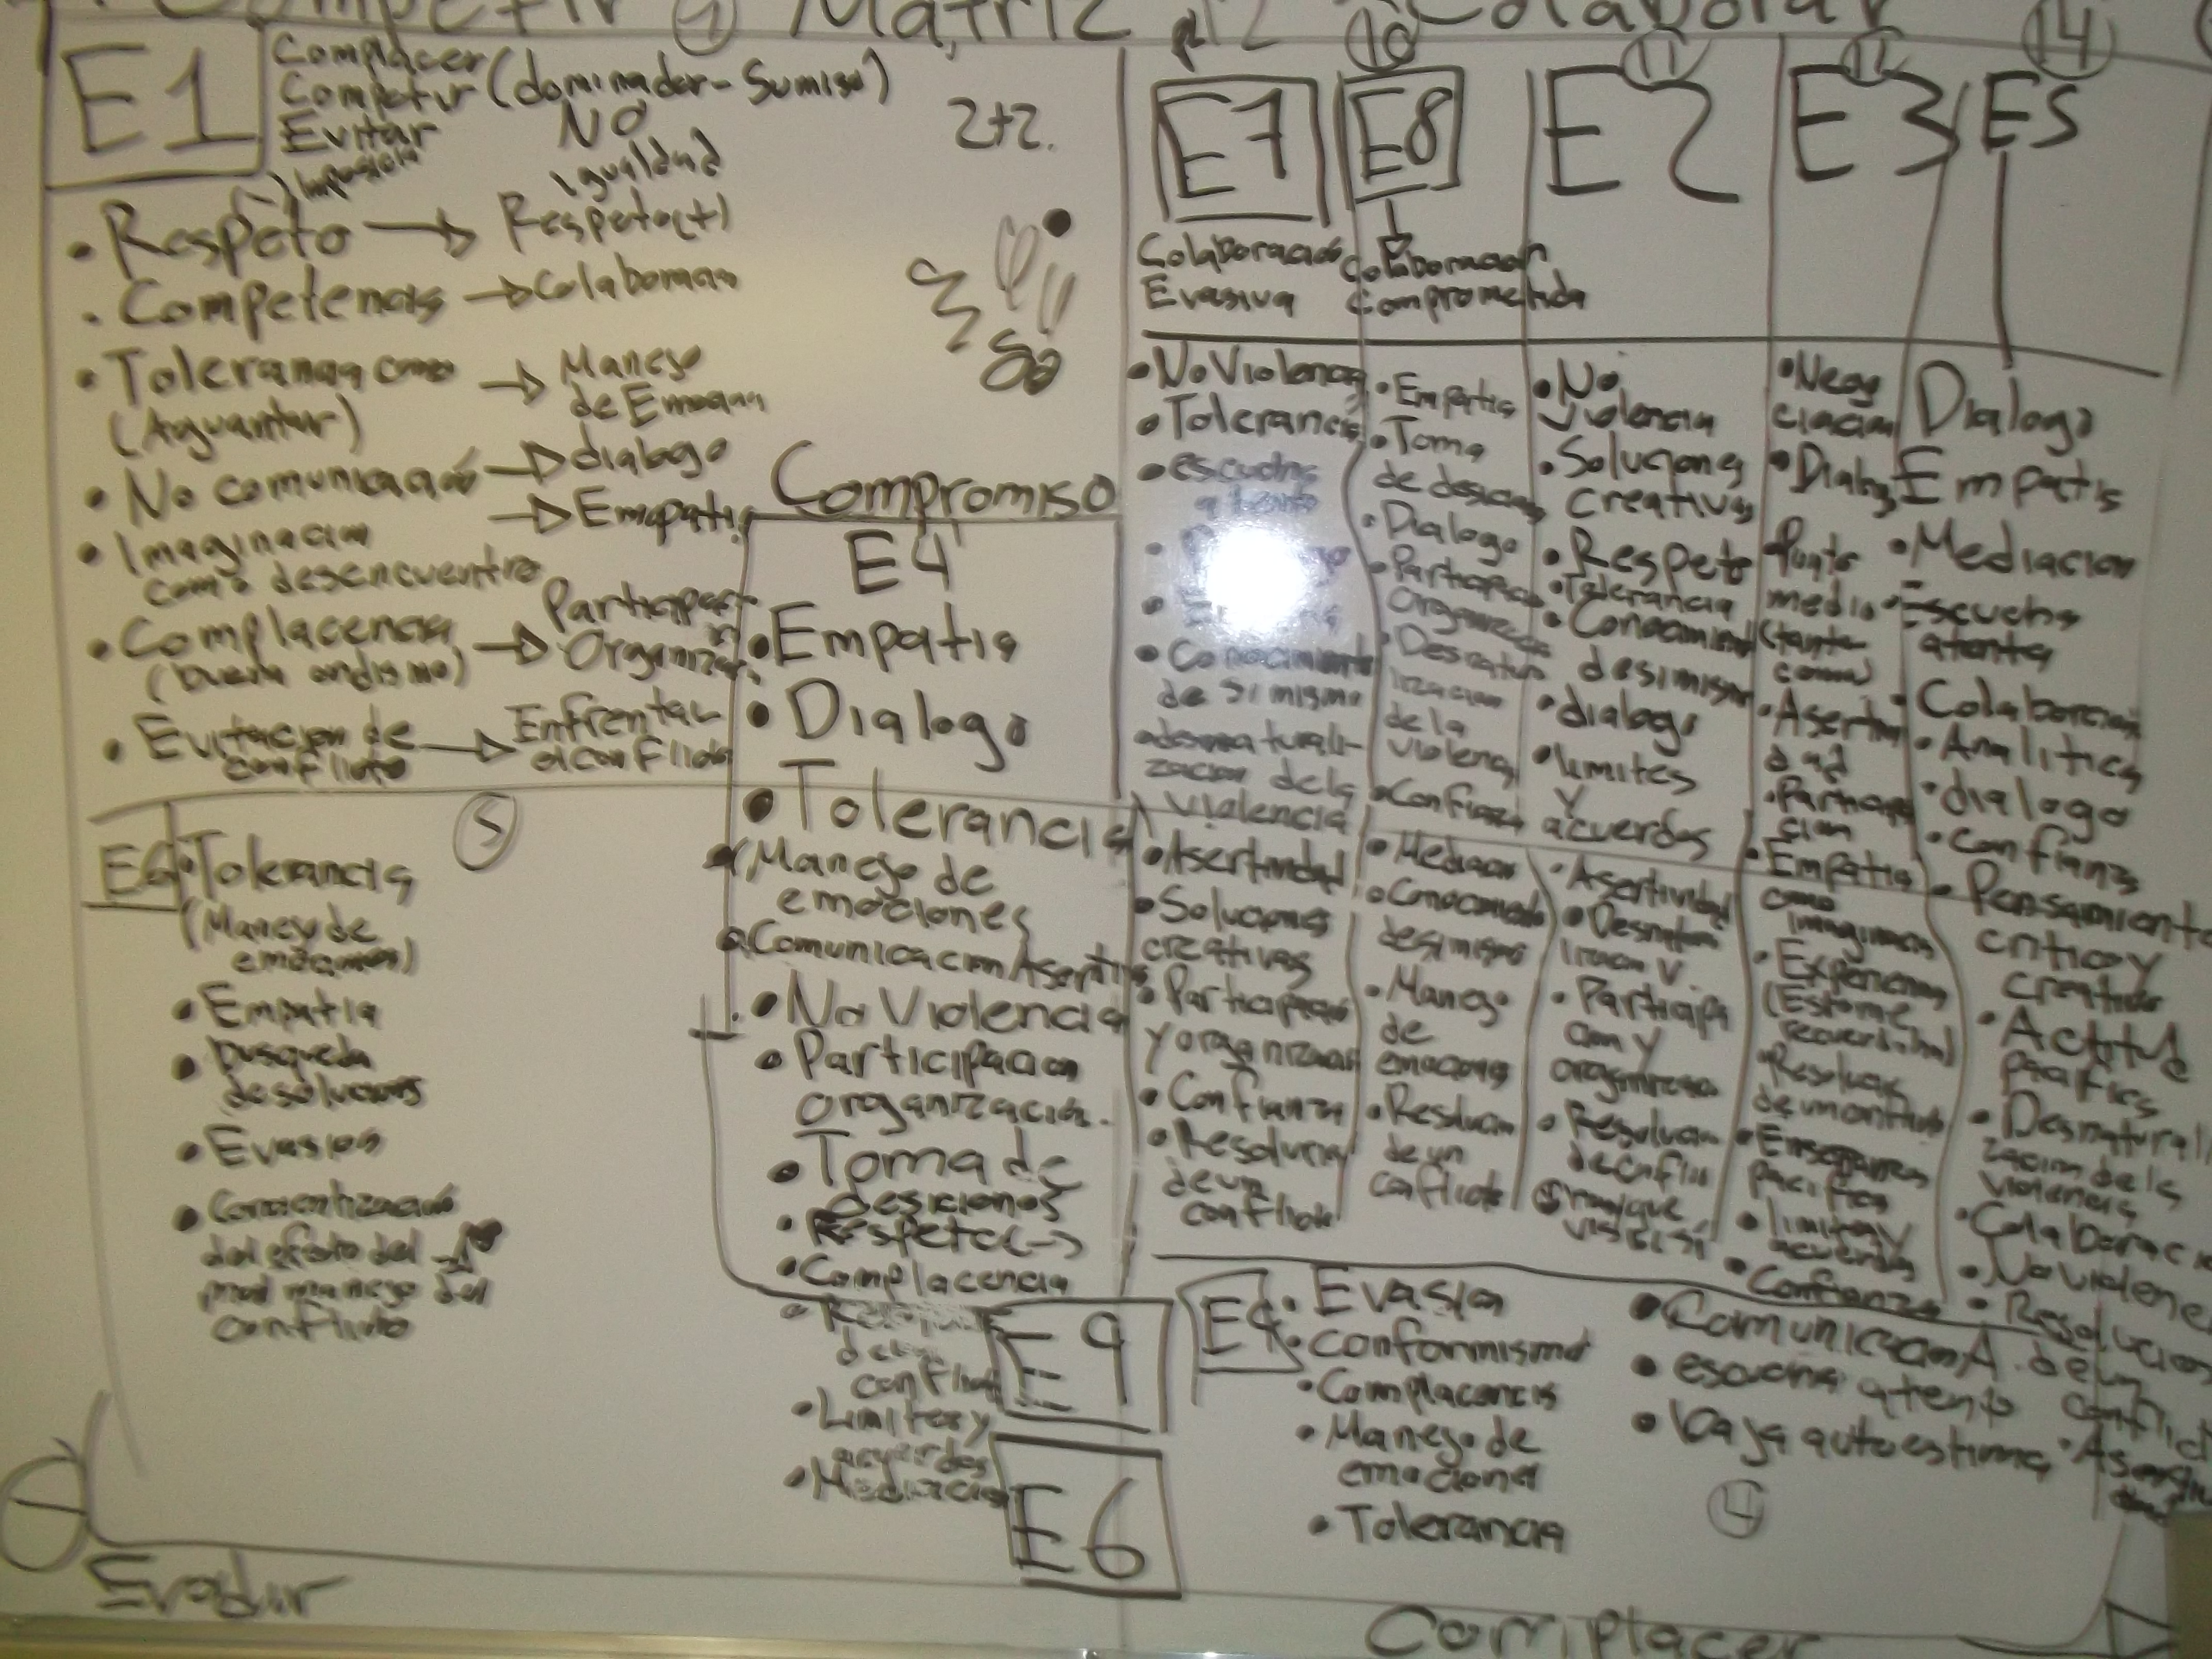 Competir 7 Matriz 12 Colaborar
E1
Complacer
Competir (dominador-Sumiso)
Evitar NO
igualdad
2+2.
• Respeto → Respeto(+)
• Competencia → Colaboracion
• Tolerancia como → Manejo
(Aguantar) de Emociones
• No comunicación → dialogo
• Imaginacion → Empatia
como desencuentro
• Complacencia → Participar
(buena ondismo) Organizar
• Evitacion de → Enfrentar
conflicto el conflicto
Compromiso
E4
• Empatia
• Dialogo
• Tolerancia
(Manejo de
emociones
Comunicacion Asertiva
• No Violencia
• Participacion
organización.
• Toma de
desiciones
• Respeto(-)
• Complacencia
• Limites y
acuerdos
• Mediacion
5
E6
• Tolerancia
(Manejo de
emociones)
• Empatia
• busqueda
de soluciones
• Evasion
• Concentización
del efecto del
mal manejo del
conflicto
E9
E6
Evadir
E7
Colaboración
Evasiva
• No Violencia
• Tolerancia
• escucha
atenta
• Conocimiento
de si mismo
desnaturali-
zacion de la
violencia
• Asertividad
• Soluciones
creativas
• Participacion
y organizacion
• Confianza
• Resolucion
de un
conflicto
10
E8
Colaboracion
Comprometida
• Empatia
• Toma
de desiciones
• Dialogo
• Participacion
organizacion
• Desnatura
lizacion
de la
violencia
• Confianza
• Mediacion
• Conocimiento
de si mismo
• Manejo
de
emociones
• Resolucion
de un
conflicto
11
E2
• No
violencia
• Soluciones
creativas
• Respeto
• Tolerancia
• Conocimiento
de si mismo
• dialogo
• limites
y
acuerdos
• Asertividad
• Desnatura
lizacion V.
• Participa
cion y
organizacion
• Resolucion
de conflic
12
E3
• Nego
ciacion
• Dialogo
Punto
medio
(tanto
como)
• Asertivi
dad
• Participa
cion
• Empatia
como
imaginacion
• Experiencia
• Enseñanza
pacifica
• limites y
acuerdos
• Confianza
14
E5
Dialogo
Empatia
• Mediacion
• Escucha
atenta
• Colaboracion
• Analitica
• dialogo
• Confianza
• Pensamiento
critico y
creativo
• Actitud
pacifica
• Desnaturali
zacion de la
violencia
• Colaboracio
• No violenc
• Resolucion
de un
conflicto
E9
• Evasion
• conformismo
• Complacencia
• Manejo de
emociones
• Tolerancia
• Comunicacion A.
• escucha atenta
• baja autoestima
4
Complacer